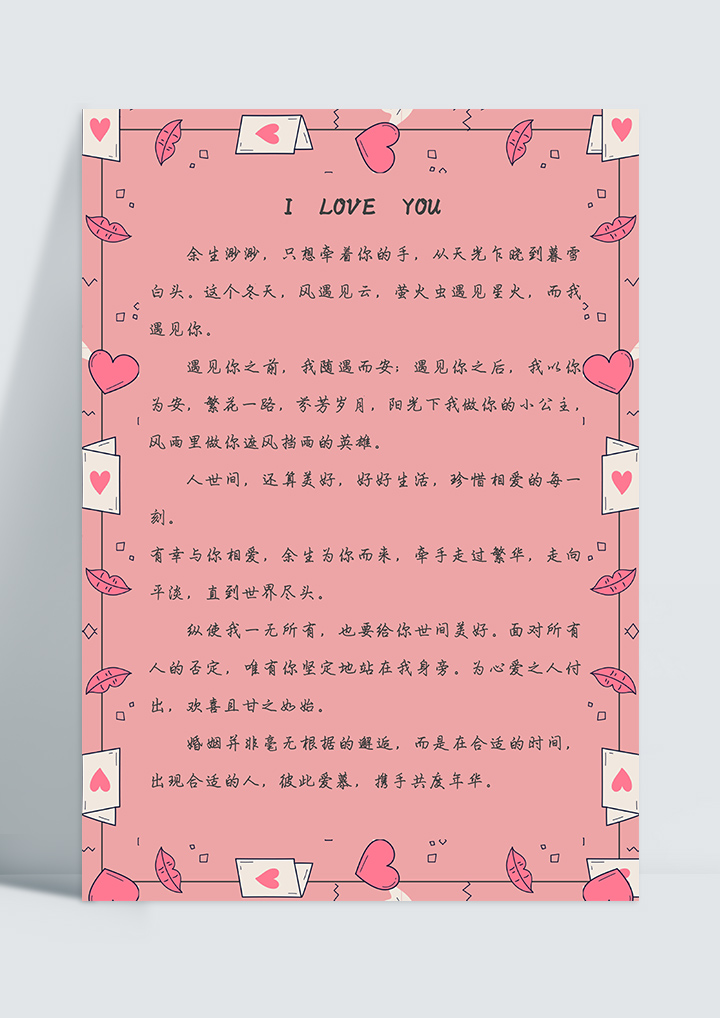 I LOVE YOU
余生渺渺，只想牵着你的手，从天光乍晓到暮雪
白头。这个冬天，风遇见云，萤火虫遇见星火，而我
遇见你。
遇见你之前，我随遇而安；遇见你之后，我以你
为安，繁花一路，芬芳岁月，阳光下我做你的小公主，
风雨里做你遮风挡雨的英雄。
人世间，还算美好，好好生活，珍惜相爱的每一
刻。
有幸与你相爱，余生为你而来，牵手走过繁华，走向
平淡，直到世界尽头。
纵使我一无所有，也要给你世间美好。面对所有
人的否定，唯有你坚定地站在我身旁。为心爱之人付
出，欢喜且甘之如始。
婚姻并非毫无根据的邂逅，而是在合适的时间，
出现合适的人，彼此爱慕，携手共度年华。